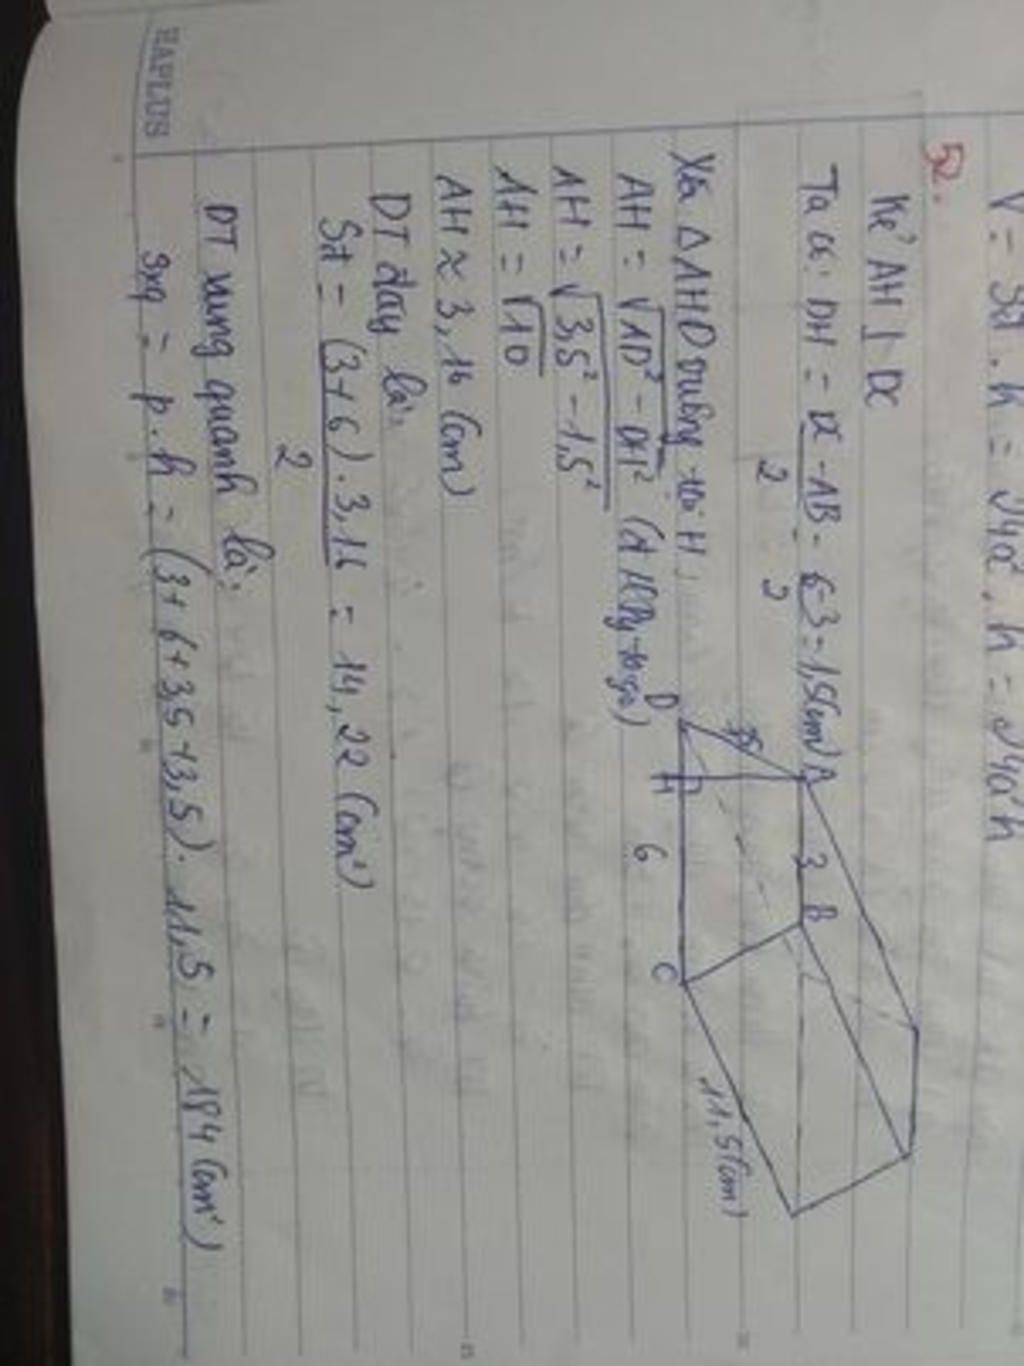 V = Sđ . h = 24a² . h = 24a²h
52.
Kẻ AH ⊥ DC
Ta có: DH = DC - AB / 2 = 6-3 / 2 = 1,5(cm)
Xét ΔAHD vuông tại H,
AH = √AD² - DH² (đl Py-ta-go)
AH = √3,5² - 1,5²
AH = √10
AH ≈ 3,16 (cm)
DT đáy là:
Sđ = (3+6) . 3,16 / 2 = 14,22 (cm²)
DT xung quanh là:
Sxq = p.h = (3+6+3,5+3,5). 11,5 = 184 (cm²)
A 3 B
D H 6 C
3,5
11,5(cm)
HAPLUS